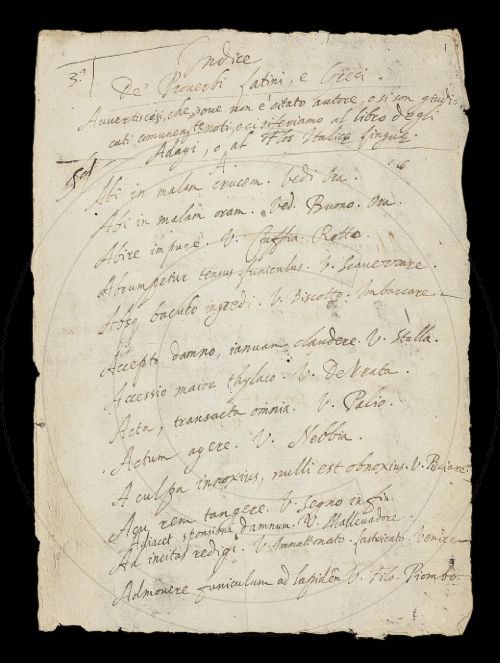 3.º
Indice
De' Proverbi Latini, e Greci.
Avvertiscasi, che dove non è citato autore, o si son giudi-
cati comunem.te noti, o ci riferiamo al libro degli
Adagi, o al Flos Italicę Linguę.
A.
Abi in malam crucem. Vedi Ora.
Abi in malam oram. Ved. Buono. Ora.
Abire impunè. V. Cuffia. Rotto.
Abrumpetur tensus funiculus. V. Scavezzare.
Absq baculo ingredi. V. Biscotto. Imbarcare
Accepto damno, ianuam claudere. V. Stalla.
Accessio maior thylaco. V. Derrata.
Acta, transacta omnia. V. Palio.
Actum agere. V. Nebbia.
A culpa innoxius, nulli est obnoxius. V.
Acu rem tangere. V. Segno in fin.
Adiacet sponsibus damnum. V. Mallevadore.
Ad incitas redigi. V. Ammattonato. Lastricato. Venire
Admovere funiculum ad lapidem V. Filo. Piombo.